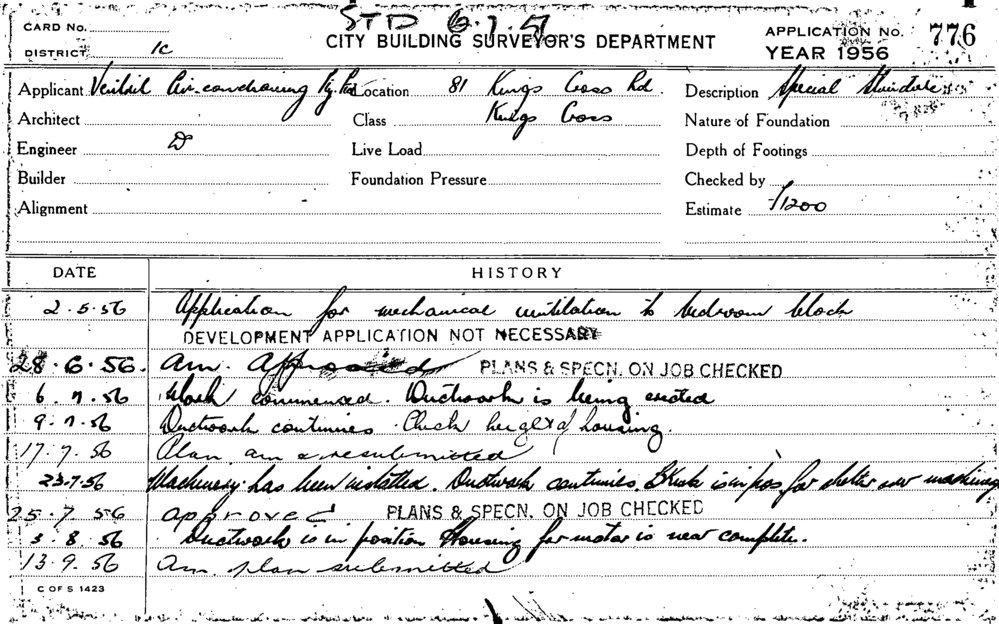 STD 6.7.57
CARD No.
CITY BUILDING SURVEYOR'S DEPARTMENT
APPLICATION No. 776
DISTRICT 1c
YEAR 1956
Applicant Air-conditioning Pty Location 81 Kings Cross Rd. Description Special
Architect Class Kings Cross Nature of Foundation
Engineer Live Load Depth of Footings
Builder Foundation Pressure Checked by
Alignment Estimate £1200
DATE HISTORY
2.5.56 Application for mechanical ventilation to bedroom block
DEVELOPMENT APPLICATION NOT NECESSARY
28.6.56. Am. Approved PLANS & SPECN. ON JOB CHECKED
6.7.56 Work commenced. Ductwork is being erected
9.7.56 Ductwork continues. Check height of housing.
17.7.56 Plan am & resubmitted
23.7.56 Machinery has been installed. Ductwork continues. is in pos for shelter over machinery
25.7.56 approved PLANS & SPECN. ON JOB CHECKED
3.8.56 Ductwork is in position Housing for motor is near complete.
13.9.56 Am. plan submitted
C OF S 1423